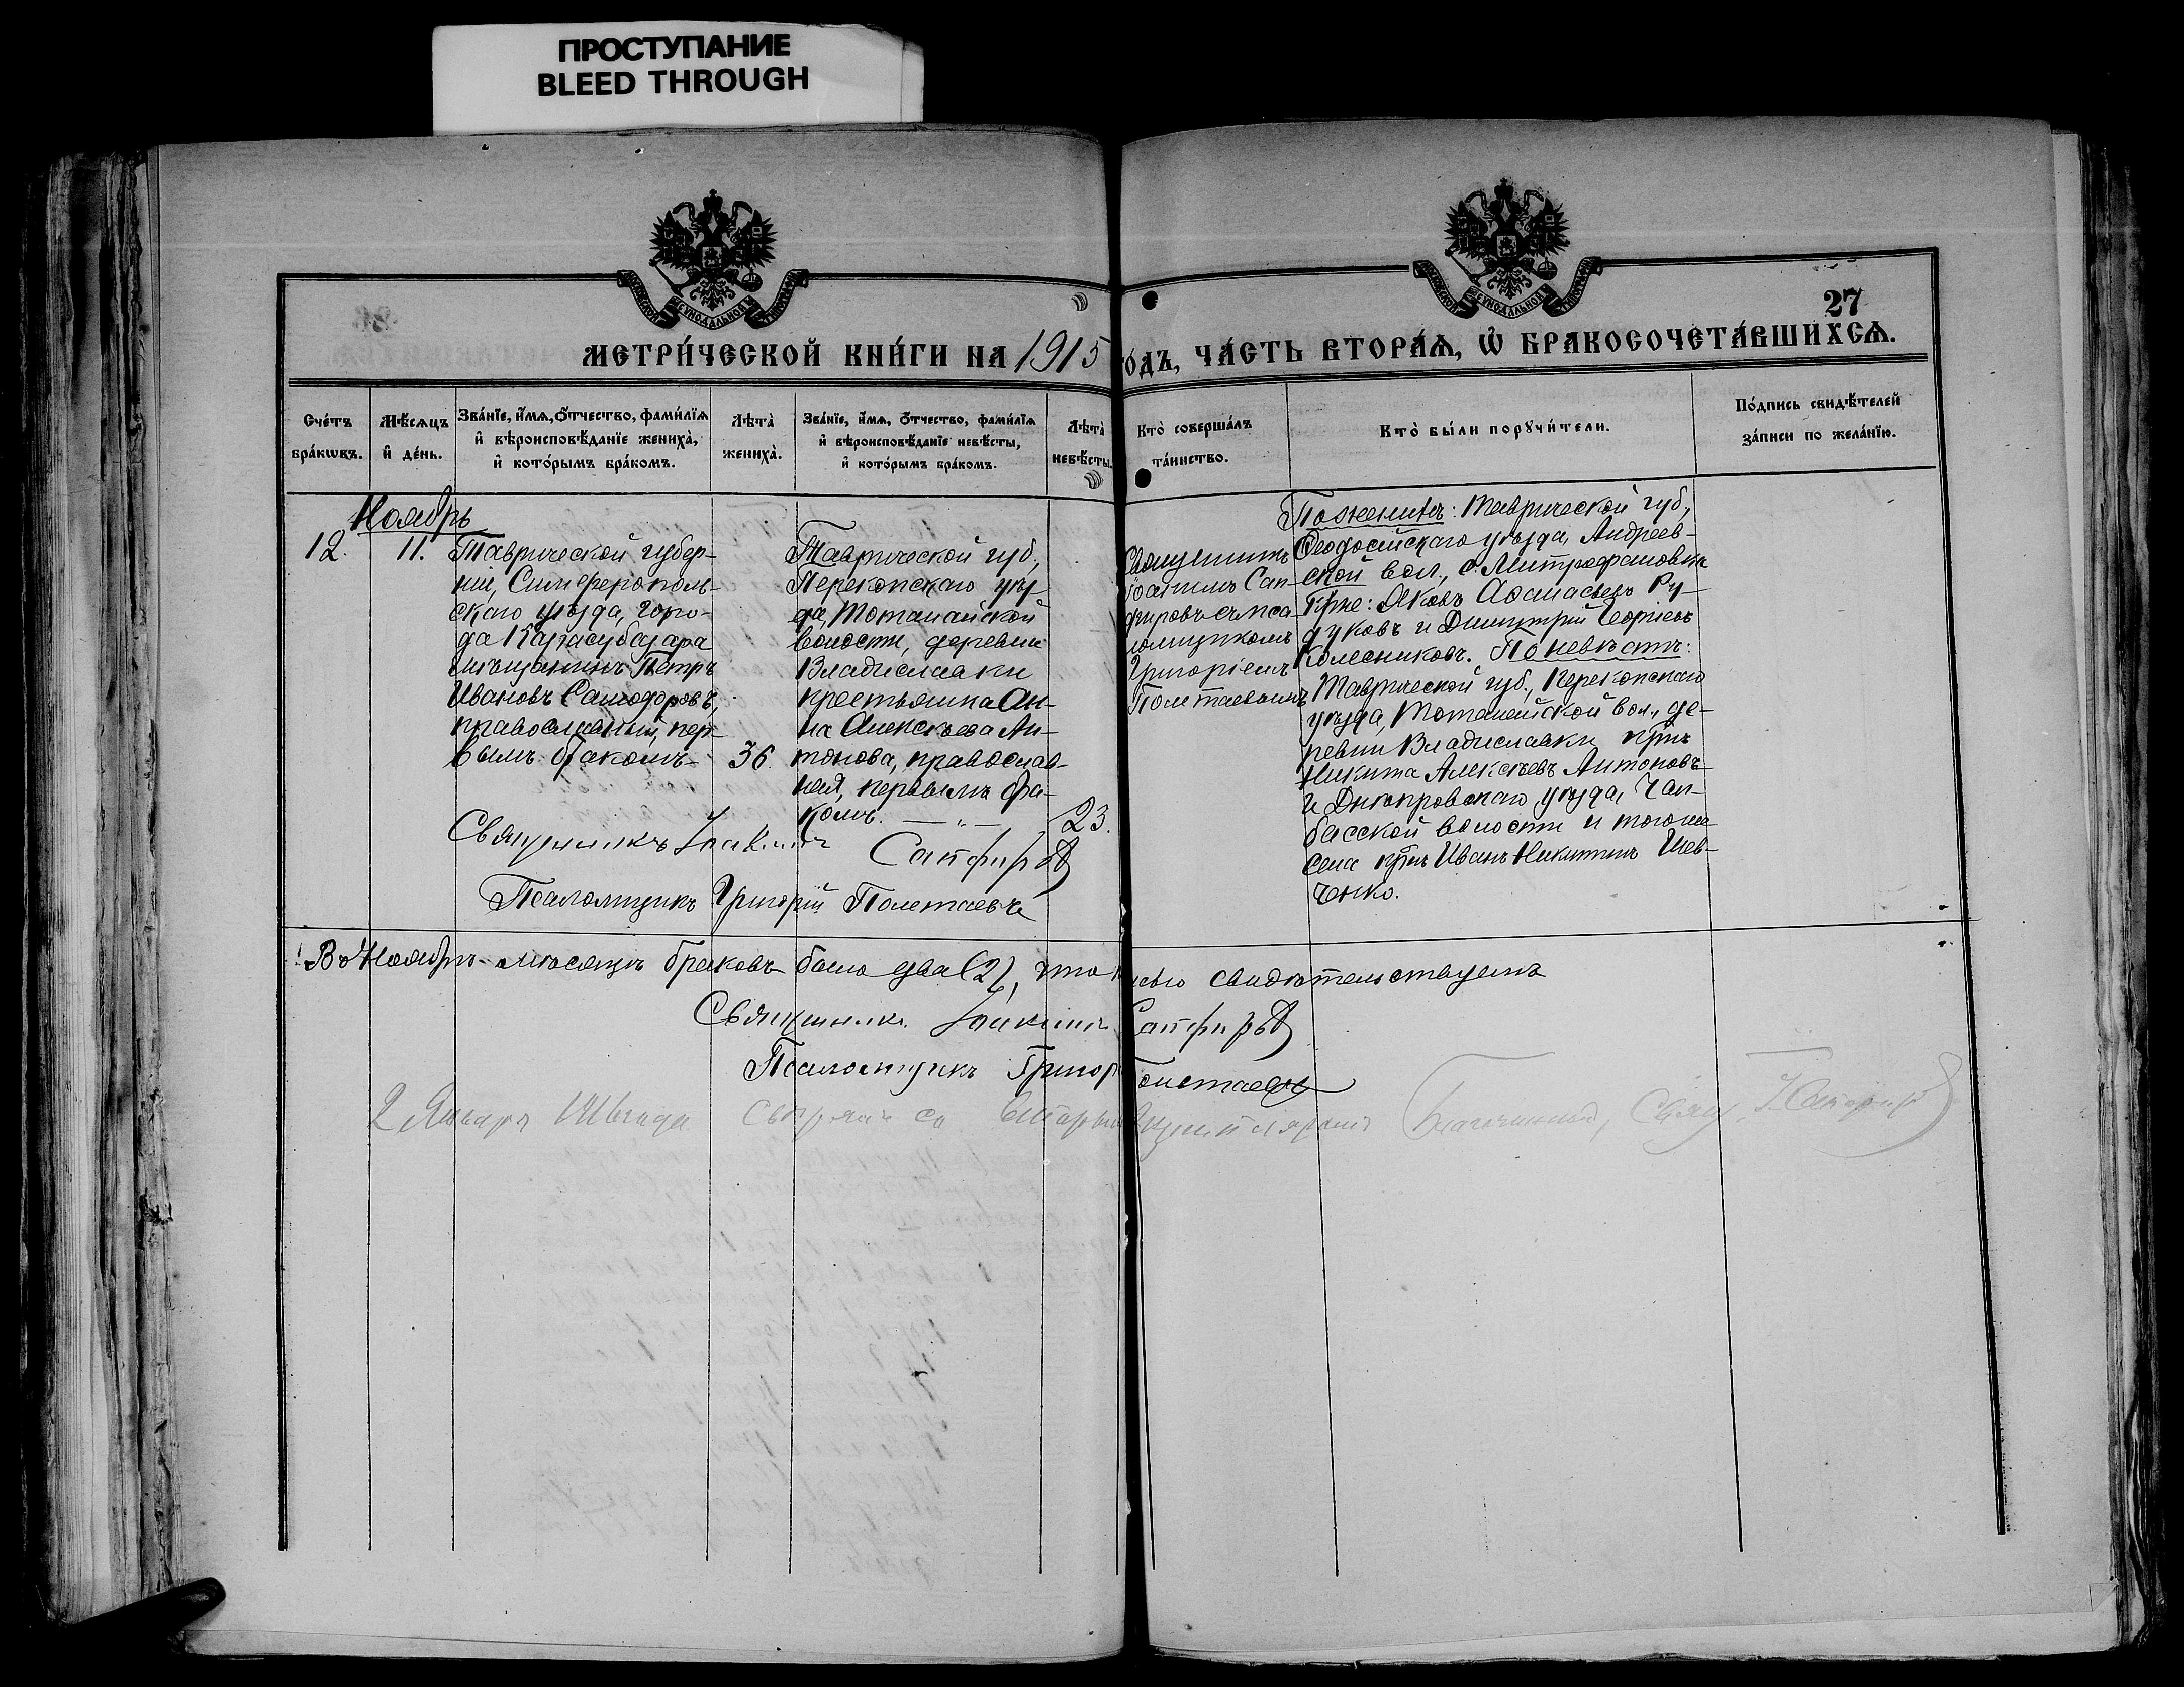 ПРОСТУПАНИЕ
BLEED THROUGH
27
МЕТРИ́ЧЕСКОЙ КНИ́ГИ НА 1915
ОДЪ, ЧА́СТЬ ВТОРА́Ѧ, Ѽ БРАКОСОЧЕТА́ВШИХСѦ.
Сче́тъ бра́кѡвъ.
Мѣ́сѧцъ и҆ де́нь.
Зва́нїе, и҆́мѧ, ѻ҆́тчество, фами́лїѧ
и҆ вѣроисповѣ́данїе жениха̀,
и҆ кото́рымъ бра́комъ.
Лѣта̀ жениха̀.
Зва́нїе, и҆́мѧ, ѻ҆́тчество, фами́лїѧ
и҆ вѣроисповѣ́данїе невѣ́сты,
и҆ кото́рымъ бра́комъ.
Лѣта̀ невѣ́сты.
Кто̀ соверша́лъ
та́инство.
Кто̀ бы́ли порꙋчи́тели.
По́дпись свидѣ́телей
за́писи по жела́нїю.
Ноябрь
12.
11.
Таврической губер-
нии, Симферополь-
скаго уѣзда, горо-
да Карасубазара
мѣщанинъ Петръ
Ивановъ Самодуровъ,
православный, пер-
вымъ бракомъ
36
Таврической губ.,
Перекопскаго уѣз-
да, Тотанайской
волости, деревни
Владиславки
крестьянка Ан-
на Алексѣева Ан-
тонова, православ-
ная, первымъ бра-
комъ. — „ —
23.
Священникъ
Іоакимъ Сап-
фировъ съ пса-
ломщикомъ
Григоріемъ
Полетаевымъ
По женихѣ: Таврической губ.,
Ѳеодосійскаго уѣзда, Андреев-
ской вол., с. Митрофановки
кр-не: Яковъ Аѳанасьевъ Ру-
дуковъ и Димитрій Георгіевъ
Колесниковъ. По невѣстѣ:
Таврической губ., Перекопскаго
уѣзда, Тотанайской вол., де-
ревни Владиславки кр-нъ
Никита Алексѣевъ Антоновъ
и Днѣпровскаго уѣзда, Чал-
басской волости и того же
села кр-нъ Иванъ Никитинъ Шев-
ченко.
Священникъ Іоакимъ Сапфировъ
Псаломщикъ Григорій Полетаевъ
Въ Ноябрѣ мѣсяцѣ браковъ было два (2), что свидѣтельствуемъ
Священникъ Іоакимъ Сапфировъ
Псаломщикъ Григор Полетаевъ
2 Января года свѣрялъ со вторымъ экземпляромъ Благочинный, Свящ. І. Сапфировъ